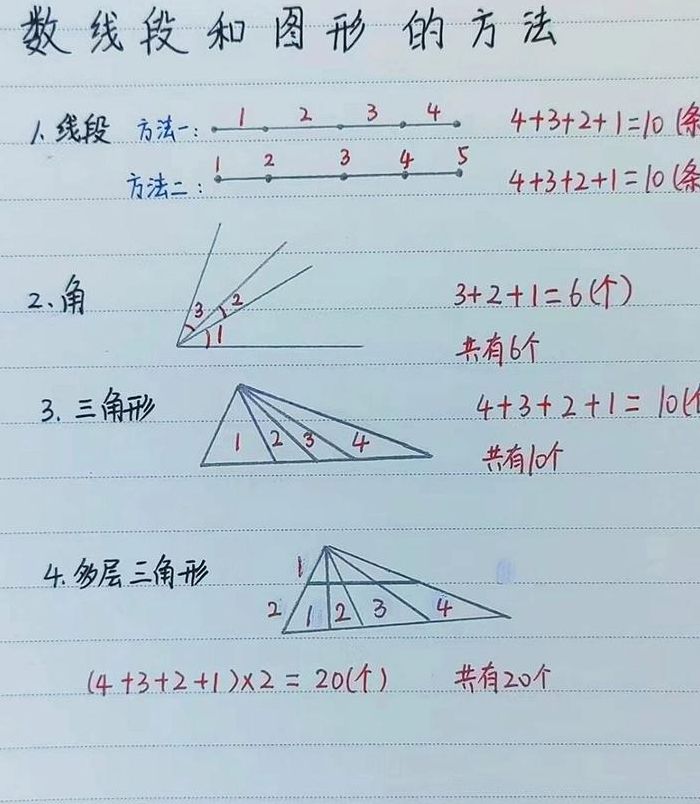 数线段和图形的方法
1、线段 方法一: 1 2 3 4 4+3+2+1=10(条
方法二: 1 2 3 4 5 4+3+2+1=10(条
2、角 3 2 1 3+2+1=6(个)
共有6个
3. 三角形 1 2 3 4 4+3+2+1=10(个
共有10个
4. 多层三角形 1
2 1 2 3 4
(4+3+2+1)×2=20(个) 共有20个